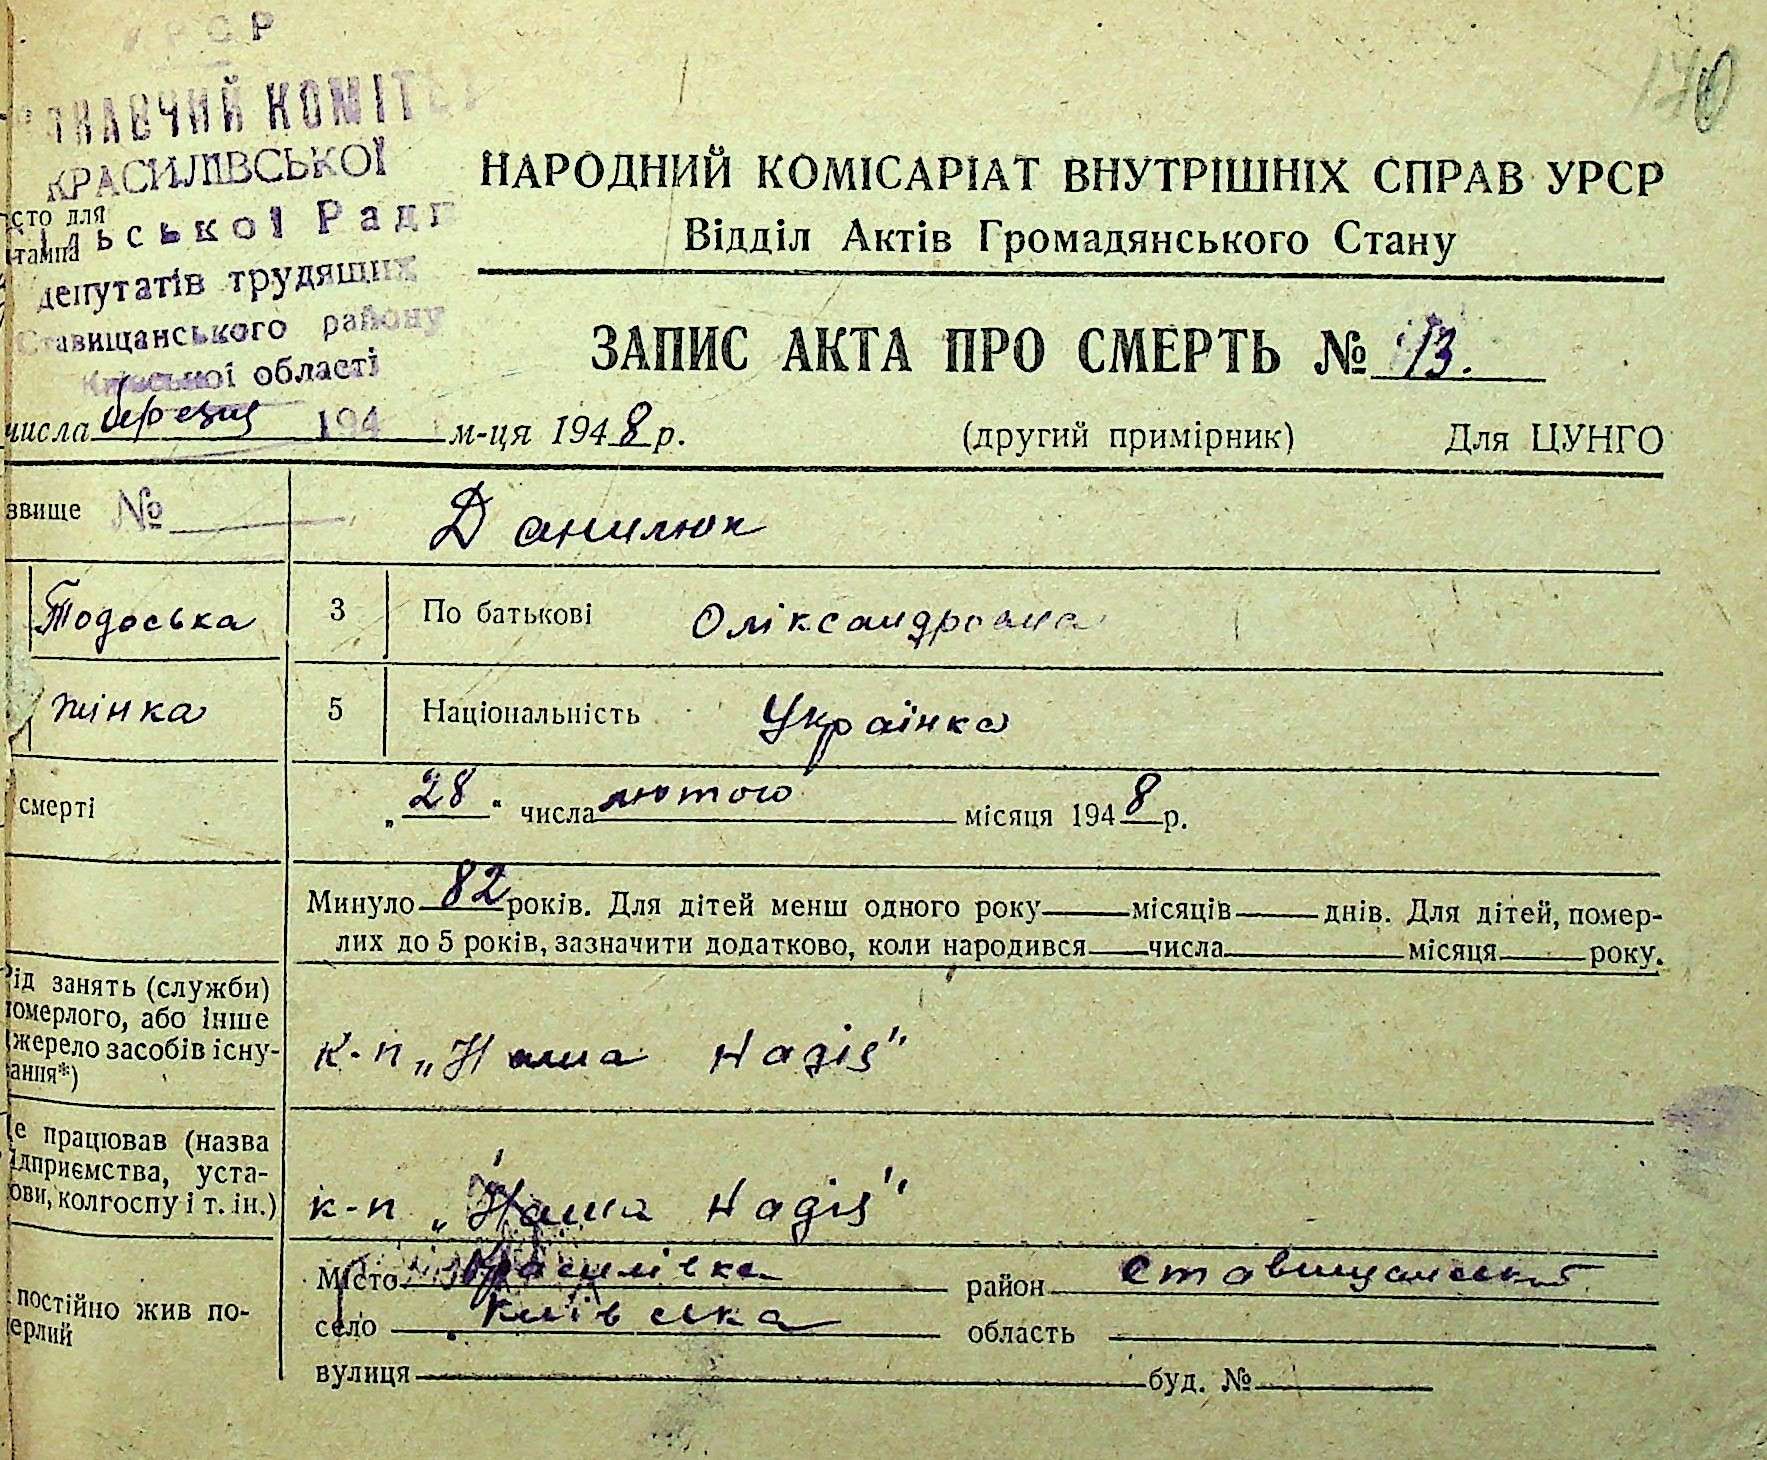 УРСР
170
НАВЧИЙ КОМІТЕТ
КРАСИЛІВСЬКОЇ
сто для
тампа
ільської Ради
депутатів трудящих
Ставищанського району
Київської області
НАРОДНИЙ КОМІСАРІАТ ВНУТРІШНІХ СПРАВ УРСР
Відділ Актів Громадянського Стану
ЗАПИС АКТА ПРО СМЕРТЬ № 13.
числа березня 194 м-ця 1948 р. (другий примірник) Для ЦУНГО
звище № Данилюк
Тодоська 3 По батькові Оліксандровна
жінка 5 Національність Українка
смерті „28“ числа лютого місяця 1948 р.
Минуло 82 років. Для дітей менш одного року місяців днів. Для дітей, помер-
лих до 5 років, зазначити додатково, коли народився числа місяця року.
Рід занять (служби)
померлого, або інше
джерело засобів існу-
ання*)
к-п „Наша Надія"
Де працював (назва
ідприємства, уста-
ови, колгоспу і т. ін.)
к-п „Наша Надія"
постійно жив по-
ерлий
Місто Красилівка район Ставищанський
село Київська область
вулиця буд. №